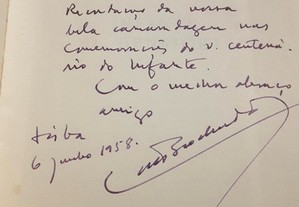 Recordação da nossa
bela camaradagem nas
Comemorações do V. Centená
rio do Infante.
Com o melhor abraço
amigo
Lisboa
6 junho 1958.